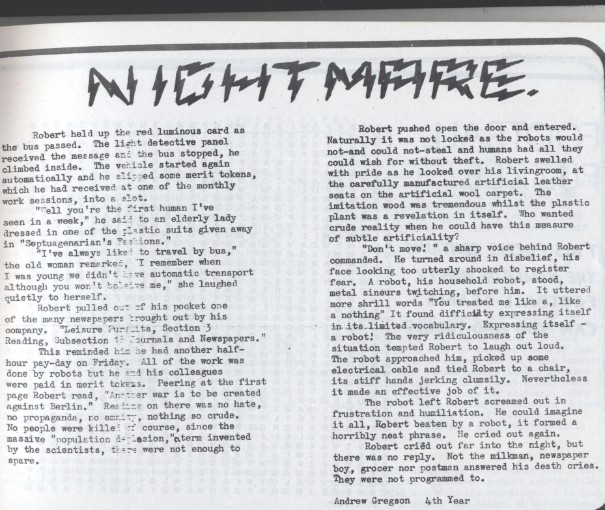 NIGHTMARE.
Robert held up the red luminous card as
the bus passed. The light detective panel
received the message and the bus stopped, he
climbed inside. The vehicle started again
automatically and he slipped some merit tokens,
which he had received at one of the monthly
work sessions, into a slot.
"Well you're the first human I've
seen in a week," he said to an elderly lady
dressed in one of the plastic suits given away
in "Septuagenarian's Fashions."
"I've always liked to travel by bus,"
the old woman remarked, "I remember when
I was young we didn't have automatic transport
although you won't believe me," she laughed
quietly to herself.
Robert pulled out of his pocket one
of the many newspapers brought out by his
company. "Leisure Pursuits, Section 3
Reading, Subsection Journals and Newspapers."
This reminded him he had another half-
hour pay-day on Friday. All of the work was
done by robots but he and his colleagues
were paid in merit tokens. Peering at the first
page Robert read, "Another war is to be created
against Berlin." Reading on there was no hate,
no propaganda, no enmity, nothing so crude.
No people were killed of course, since the
massive "population" a term invented
by the scientists, there were not enough to
spare.
Robert pushed open the door and entered.
Naturally it was not locked as the robots would
not-and could not-steal and humans had all they
could wish for without theft. Robert swelled
with pride as he looked over his livingroom, at
the carefully manufactured artificial leather
seats on the artificial wool carpet. The
imitation wood was tremendous whilst the plastic
plant was a revelation in itself. Who wanted
crude reality when he could have this measure
of subtle artificiality?
"Don't move! " a sharp voice behind Robert
commanded. He turned around in disbelief, his
face looking too utterly shocked to register
fear. A robot, his household robot, stood,
metal sineurs twitching, before him. It uttered
more shrill words "You treated me like a, like
a nothing" It found difficulty expressing itself
in its limited vocabulary. Expressing itself -
a robot! The very ridiculousness of the
situation tempted Robert to laugh out loud.
The robot approached him, picked up some
electrical cable and tied Robert to a chair,
its stiff hands jerking clumsily. Nevertheless
it made an effective job of it.
The robot left Robert screamed out in
frustration and humiliation. He could imagine
it all, Robert beaten by a robot, it formed a
horribly neat phrase. He cried out again.
Robert cried out far into the night, but
there was no reply. Not the milkman, newspaper
boy, grocer nor postman answered his death cries.
They were not programmed to.
Andrew Gregson 4th Year